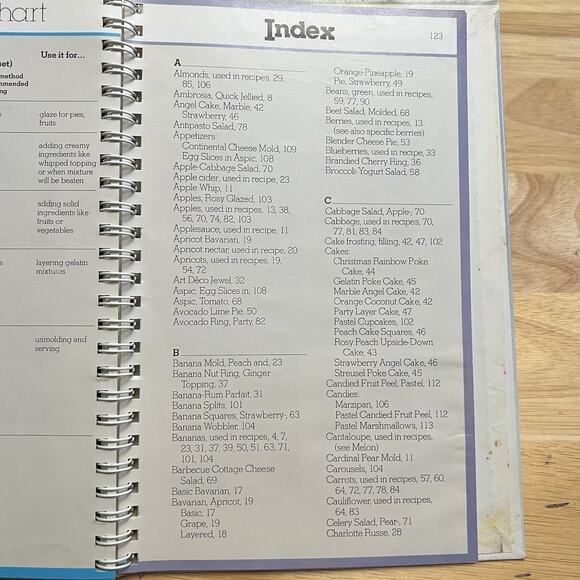 hart
Use it for...
set)
method
mmended
ng
glaze for pies,
fruits
adding creamy
ingredients like
whipped topping
or when mixture
will be beaten
adding solid
ingredients like
fruits or
vegetables
layering gelatin
mixtures
unmolding and
serving
Index
123
A
Almonds, used in recipes, 29,
85, 106
Ambrosia, Quick Jellied, 8
Angel Cake, Marble, 42
Strawberry, 46
Antipasto Salad, 78
Appetizers:
Continental Cheese Mold, 109
Egg Slices in Aspic, 108
Apple-Cabbage Salad, 70
Apple cider, used in recipe, 23
Apple Whip, 11
Apples, Rosy Glazed, 103
Apples, used in recipes, 13, 38,
56, 70, 74, 82, 103
Applesauce, used in recipe, 11
Apricot Bavarian, 19
Apricot nectar, used in recipe, 20
Apricots, used in recipes, 19,
54, 72
Art Déco Jewel, 32
Aspic, Egg Slices in, 108
Aspic, Tomato, 68
Avocado Lime Pie, 50
Avocado Ring, Party, 82
B
Banana Mold, Peach and, 23
Banana Nut Ring, Ginger
Topping, 37
Banana-Rum Parfait, 31
Banana Splits, 101
Banana Squares, Strawberry-, 63
Banana Wobbler, 104
Bananas, used in recipes, 4, 7,
23, 31, 37, 39, 50, 51, 63, 71,
101, 104
Barbecue Cottage Cheese
Salad, 69
Basic Bavarian, 17
Bavarian, Apricot, 19
Basic, 17
Grape, 19
Layered, 18
Orange-Pineapple, 19
Pie, Strawberry, 49
Beans, green, used in recipes,
59, 77, 90
Beet Salad, Molded, 68
Berries, used in recipes, 13
(see also specific berries)
Blender Cheese Pie, 53
Blueberries, used in recipe, 33
Brandied Cherry Ring, 36
Broccoli-Yogurt Salad, 58
C
Cabbage Salad, Apple-, 70
Cabbage, used in recipes, 70,
77, 81, 83, 84
Cake frosting, filling, 42, 47, 102
Cakes:
Christmas Rainbow Poke
Cake, 44
Gelatin Poke Cake, 45
Marble Angel Cake, 42
Orange Coconut Cake, 42
Party Layer Cake, 47
Pastel Cupcakes, 102
Peach Cake Squares, 46
Rosy Peach Upside-Down
Cake, 43
Strawberry Angel Cake, 46
Streusel Poke Cake, 45
Candied Fruit Peel, Pastel, 112
Candies:
Marzipan, 106
Pastel Candied Fruit Peel, 112
Pastel Marshmallows, 113
Cantaloupe, used in recipes,
(see Melon)
Cardinal Pear Mold, 11
Carousels, 104
Carrots, used in recipes, 57, 60,
64, 72, 77, 78, 84
Cauliflower, used in recipes,
64, 83
Celery Salad, Pear-, 71
Charlotte Russe, 28